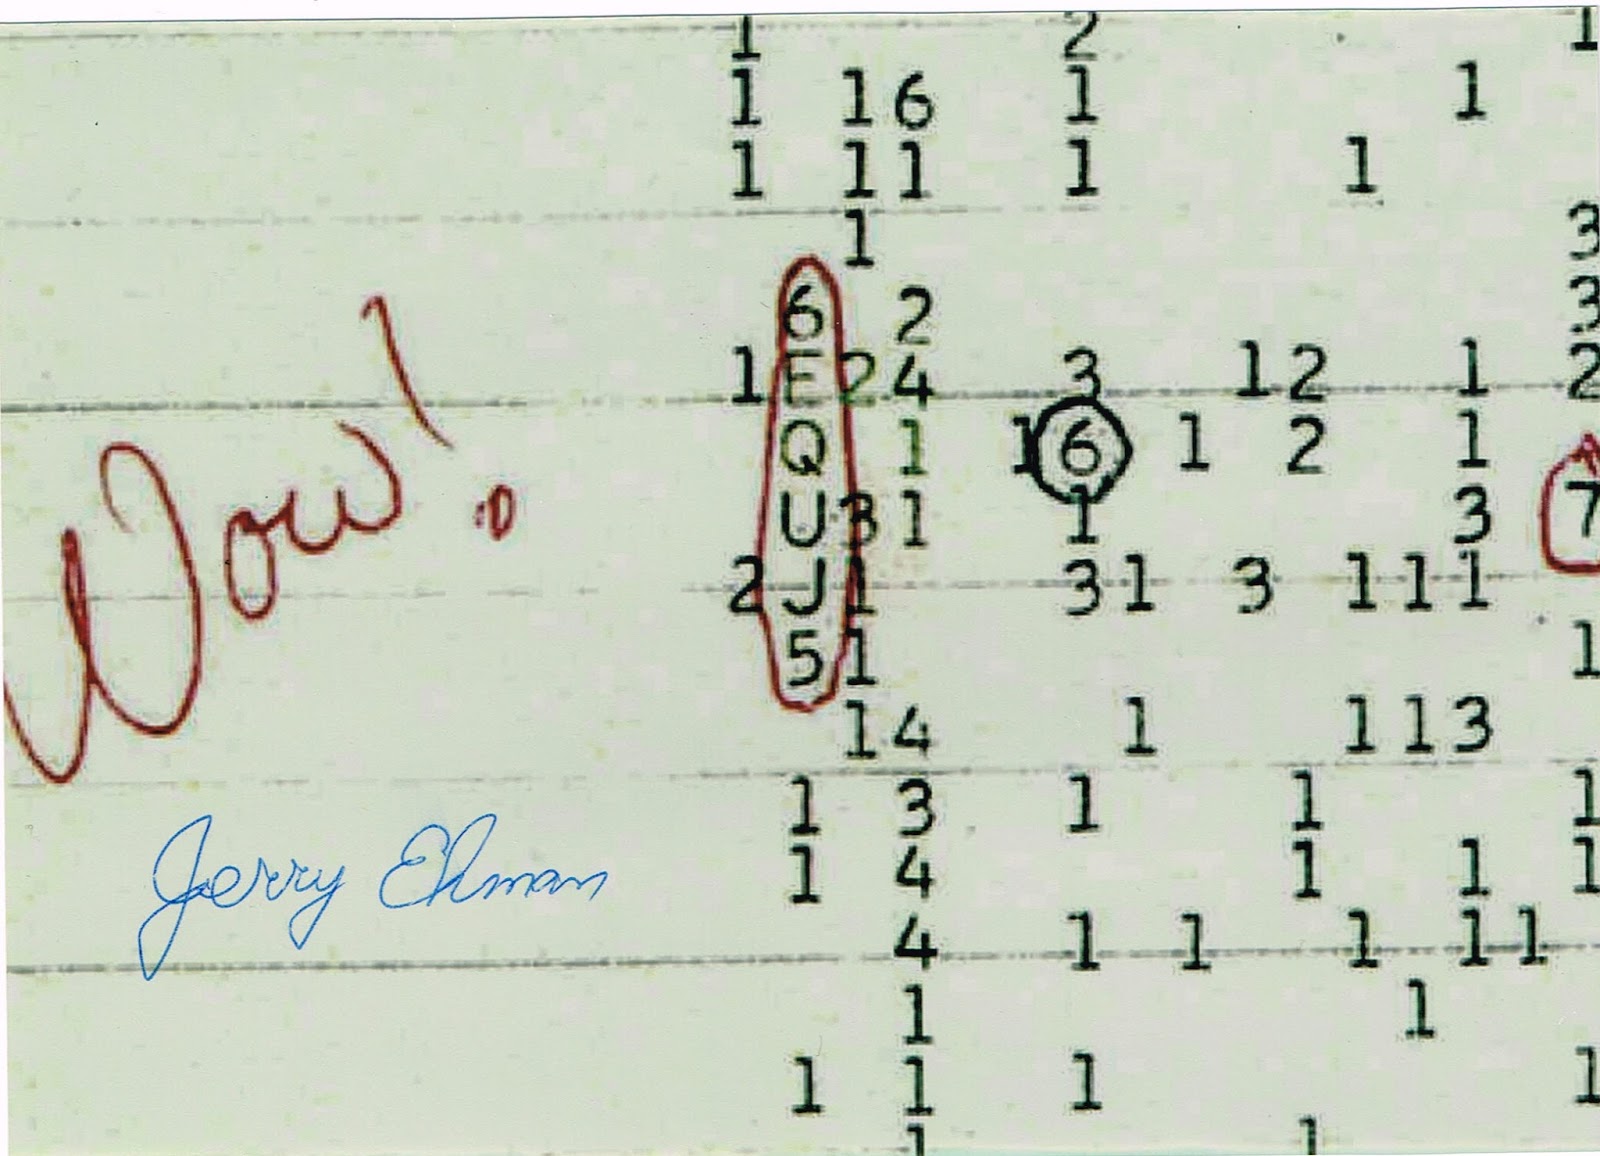 1 2 1
1 16 1 1
1 11 1 1
1 3
6 2 3
1E24 3 12 1 2
Q 1 16 1 2 1
U31 1 3 7
2J1 31 3 111
51 1
14 1 113
1 3 1 1 1
1 4 1 1 1
4 1 1 1 11
1 1
1 1 1 1
1 1
Wow!
Jerry Ehman